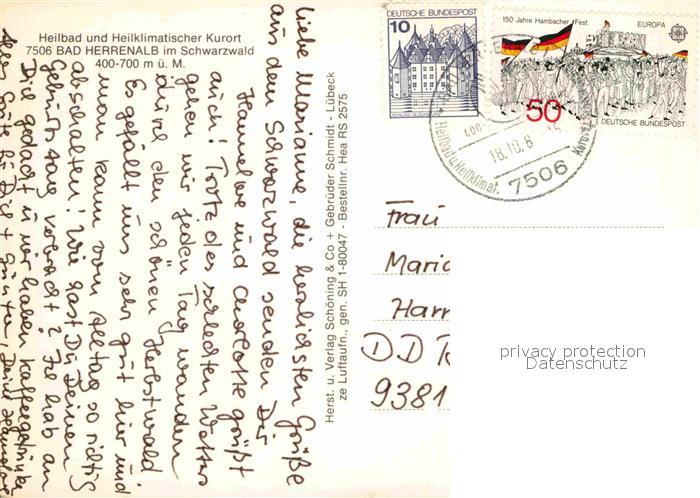 Heilbad und Heilklimatischer Kurort
7506 BAD HERRENALB im Schwarzwald
400-700 m ü. M.
Liebe Marianne, die herzlichsten Grüße
aus dem Schwarzwald senden Dir
Hannelore und Charlotte grüßt
auch! Trotz des schlechten Wetters
gehen wir jeden Tag wandern
durch den schönen Herbstwald
Es gefällt uns sehr gut hier und
man kann vom Alltag so richtig
abschalten! Wie hast Du Deinen
Geburtstag verbracht? Ich hab an
Dich gedacht u. wir haben Kaffee getrunken
Alles Gute für Dich + Günter, Deine Hannelore
Herst. u. Verlag Schöning & Co + Gebrüder Schmidt - Lübeck
ze Luftaufn., gen. SH 1-80047 - Bestellnr. Hea RS 2575
DEUTSCHE BUNDESPOST
10
SCHLOSS GLÜCKSBURG
150 Jahre Hambacher Fest
EUROPA
50
DEUTSCHE BUNDESPOST
18.10.8
Heilbad u. Heilklimat.
7506
Frau
Maria
Harr
DDR
9381
privacy protection
Datenschutz